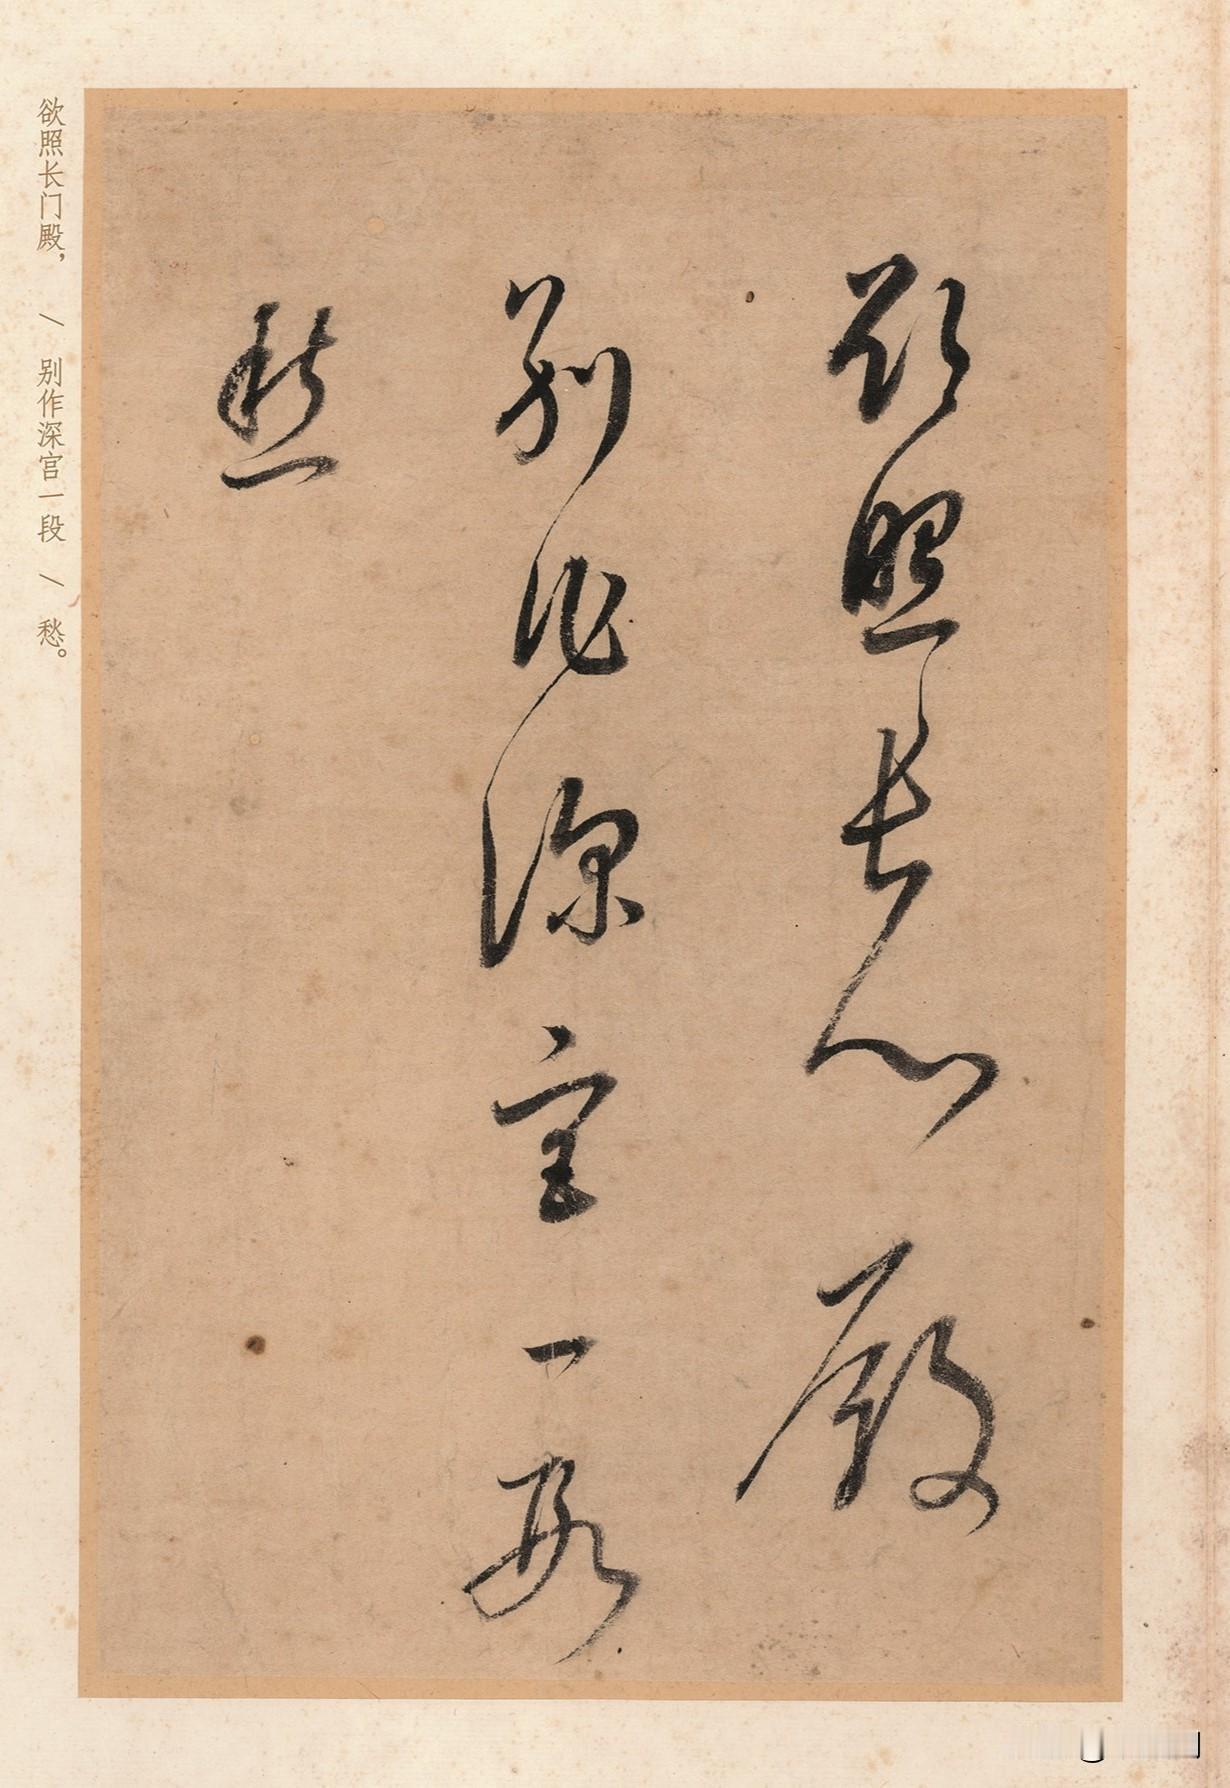 欲照長门殿
别作深宫一段
愁
欲照长门殿，\别作深宫一段\愁。